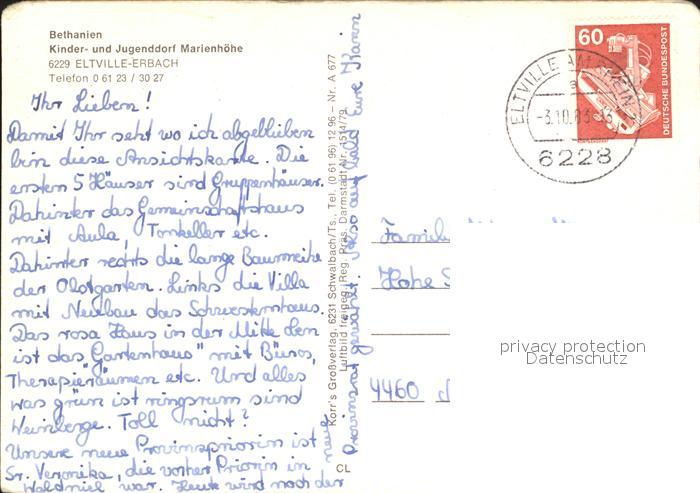 Bethanien
Kinder- und Jugenddorf Marienhöhe
6229 ELTVILLE-ERBACH
Telefon 0 61 23 / 30 27
Ihr Lieben!
Damit Ihr seht wo ich abgeblieben
bin diese Ansichtskarte. Die
ersten 5 Häuser sind Gruppenhäuser.
Dahinter das Gemeinschaftshaus
mit Aula, Tonkeller etc.
Dahinter rechts die lange Baumreihe
der Obstgarten. Links die Villa
mit Neubau das Schwesternhaus.
Das rosa Haus in der Mitte
ist das "Gartenhaus" mit Büros,
Therapieräumen etc. Und alles
was grün ist ringsrum sind
Weinberge. Toll nicht?
Unsere neue Provinspriorin ist
Sr. Veronika, die vorher Priorin in
Waldniel war. Heute wird noch der
neue
Provinsrat gewählt. Also auf bald Eure Karin
Korr's Großverlag, 6231 Schwalbach/Ts., Tel. (0 61 96) 12 96 – Nr. A 677
Luftbild freigeg. Reg. Präs. Darmstadt Nr. 1514/79
CL
60
DEUTSCHE BUNDESPOST
ELTVILLE AM RHEIN 1
a
-3.10.83-
6228
Famil
Hohe S
4460
privacy protection
Datenschutz